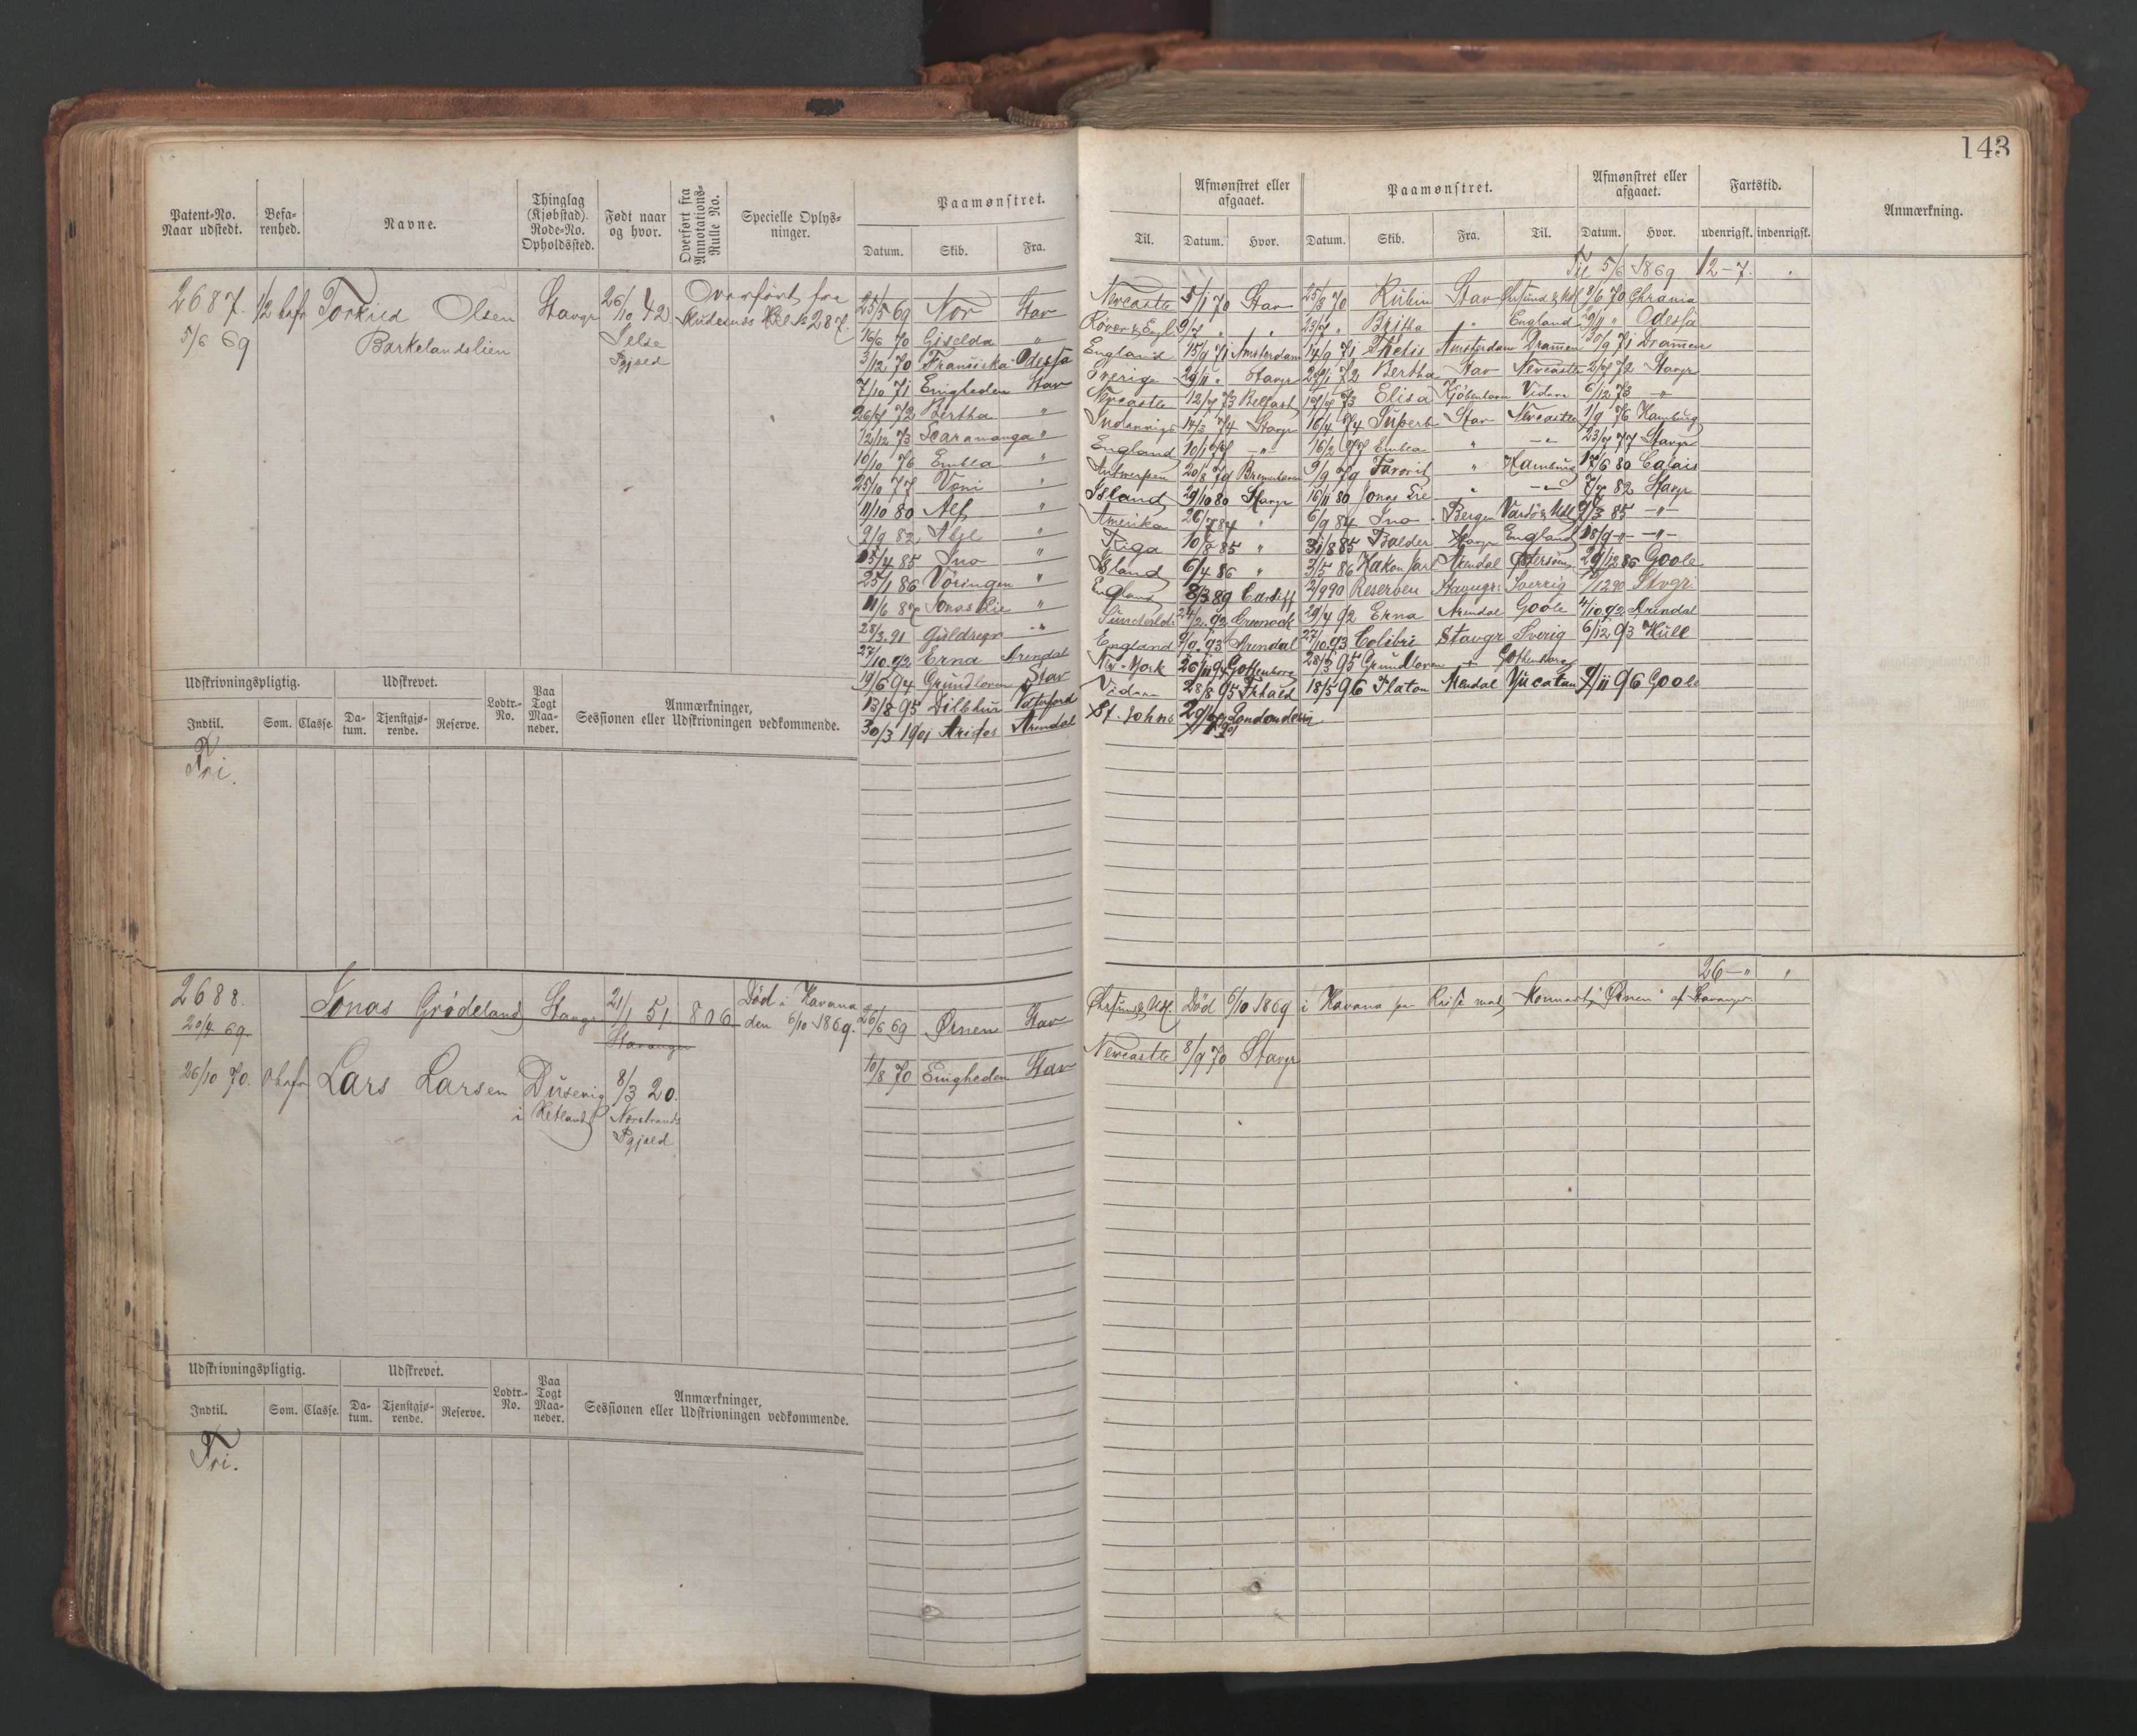 143
Patent-No. Naar udstedt.
Befarenhed.
Navne.
Thinglag (Kjøbstad). Rode-No. Opholdssted.
Født naar og hvor.
Overført fra Annotations-Rulle No.
Specielle Oplysninger.
Paamønstret.
Datum. Skib. Fra. Til.
Afmønstret eller afgaaet.
Datum. Hvor.
Paamønstret.
Datum. Skib. Fra. Til.
Afmønstret eller afgaaet.
Datum. Hvor.
Fartstid.
udenrigsk. indenrigsk.
Anmærkning.
Til 5/6 1869 12-7.
2687. 1/2 bef Torkild Olsen Stavgr 26/10 42 Overført fra
5/6 69 Barkelandslien Jelse Skudesnes No 287.
Pgjæld
25/5 69 Nor Stav Newcastle 5/1 70 Stav 25/3 70 Rubin Stav 8/6 70 Chrania
16/6 70 Giselda " 9/7 " " 23/7 " Britha " England Odessa
3/12 70 Franciska Odessa England 15/9 71 Amsterdam 14/9 71 Thetis Amsterdam Dramen 30/9 71 Dramen
7/10 71 Enigheden Stav Sverige 29/11 " Stavgr 29/1 72 Bertha Stav Newcastle 2/7 72 Stavgr
26/7 72 Bertha " Newcastle 12/7 73 Belfast 19/7 73 Elisa Kjøbenhavn 6/12 73 "
12/12 73 Scaramanga " Indenrigs 14/3 74 Stavgr 16/4 74 Superb Stav Newcastle 1/9 76 Hamburg
10/10 76 Embla " England 10/1 77 " 16/2 77 Embla " " 23/7 77 Stavgr
25/10 77 " Antwerpen 20/8 79 Bremerhaven 9/9 79 Favorit " Hamburg 17/6 80 Calais
11/10 80 Alf " Island 29/10 80 Stavgr 16/11 80 Jonas Lie " " 7/7 82 Stavgr
2/9 82 " Amerika 26/7 84 " 6/9 84 Ino Bergen 2/3 85 "
15/4 85 Ino " Riga 10/8 85 " 31/8 85 Balder Stavgr England 18/9 " "
25/1 86 Vöringen " Island 6/4 86 " 3/5 86 Hakon Jarl Arendal 29/12 86 Goole
11/6 87 Jonas Lie " England 8/3 89 Cardiff 2/9 90 Reserven Stavgr Sverrig Stvgr
28/3 91 Guldregn " Greenock 29/4 92 Erna Arendal Goole 4/10 92 Arendal
27/10 92 Erna Arendal England 9/9 93 Arendal 27/10 93 Colibri Stavgr Sverig 6/12 93 Hull
19/6 94 Grundloven Stav New-York 26/11 94 Gothenborg 28/3 95 Grundloven " Gothenborg
13/8 95 Dilbhur Vaterford 28/8 95 18/5 96 Platon Arendal Yucatan 9/11 96 Goole
30/3 1901 Arendal St. Johns Londonderri
Udskrivningspligtig.
Indtil. Som. Classe.
Udskrevet.
Datum. Tjenstgjørende. Reserve.
Lodtr.-No.
Paa Togt Maaneder.
Anmærkninger, Sessionen eller Udskrivningen vedkommende.
Fri.
26-" "
2688. Jonas Grödeland Stavgr 21/1 51 806 Död i Havana
20/4 69. Stavanger den 6/10 1869.
26/6 69 Ørnen Stav Död 6/10 1869 i Havana paa Reise med "Ørnen" af Stavanger
26/10 70. Lars Larsen Dusevig 8/3 20.
i Retland Nerstrands
Pgjæld
10/8 70 Enigheden Stav Newcastle 8/9 70 Stavgr
Udskrivningspligtig.
Indtil. Som. Classe.
Udskrevet.
Datum. Tjenstgjørende. Reserve.
Lodtr.-No.
Paa Togt Maaneder.
Anmærkninger, Sessionen eller Udskrivningen vedkommende.
Fri.